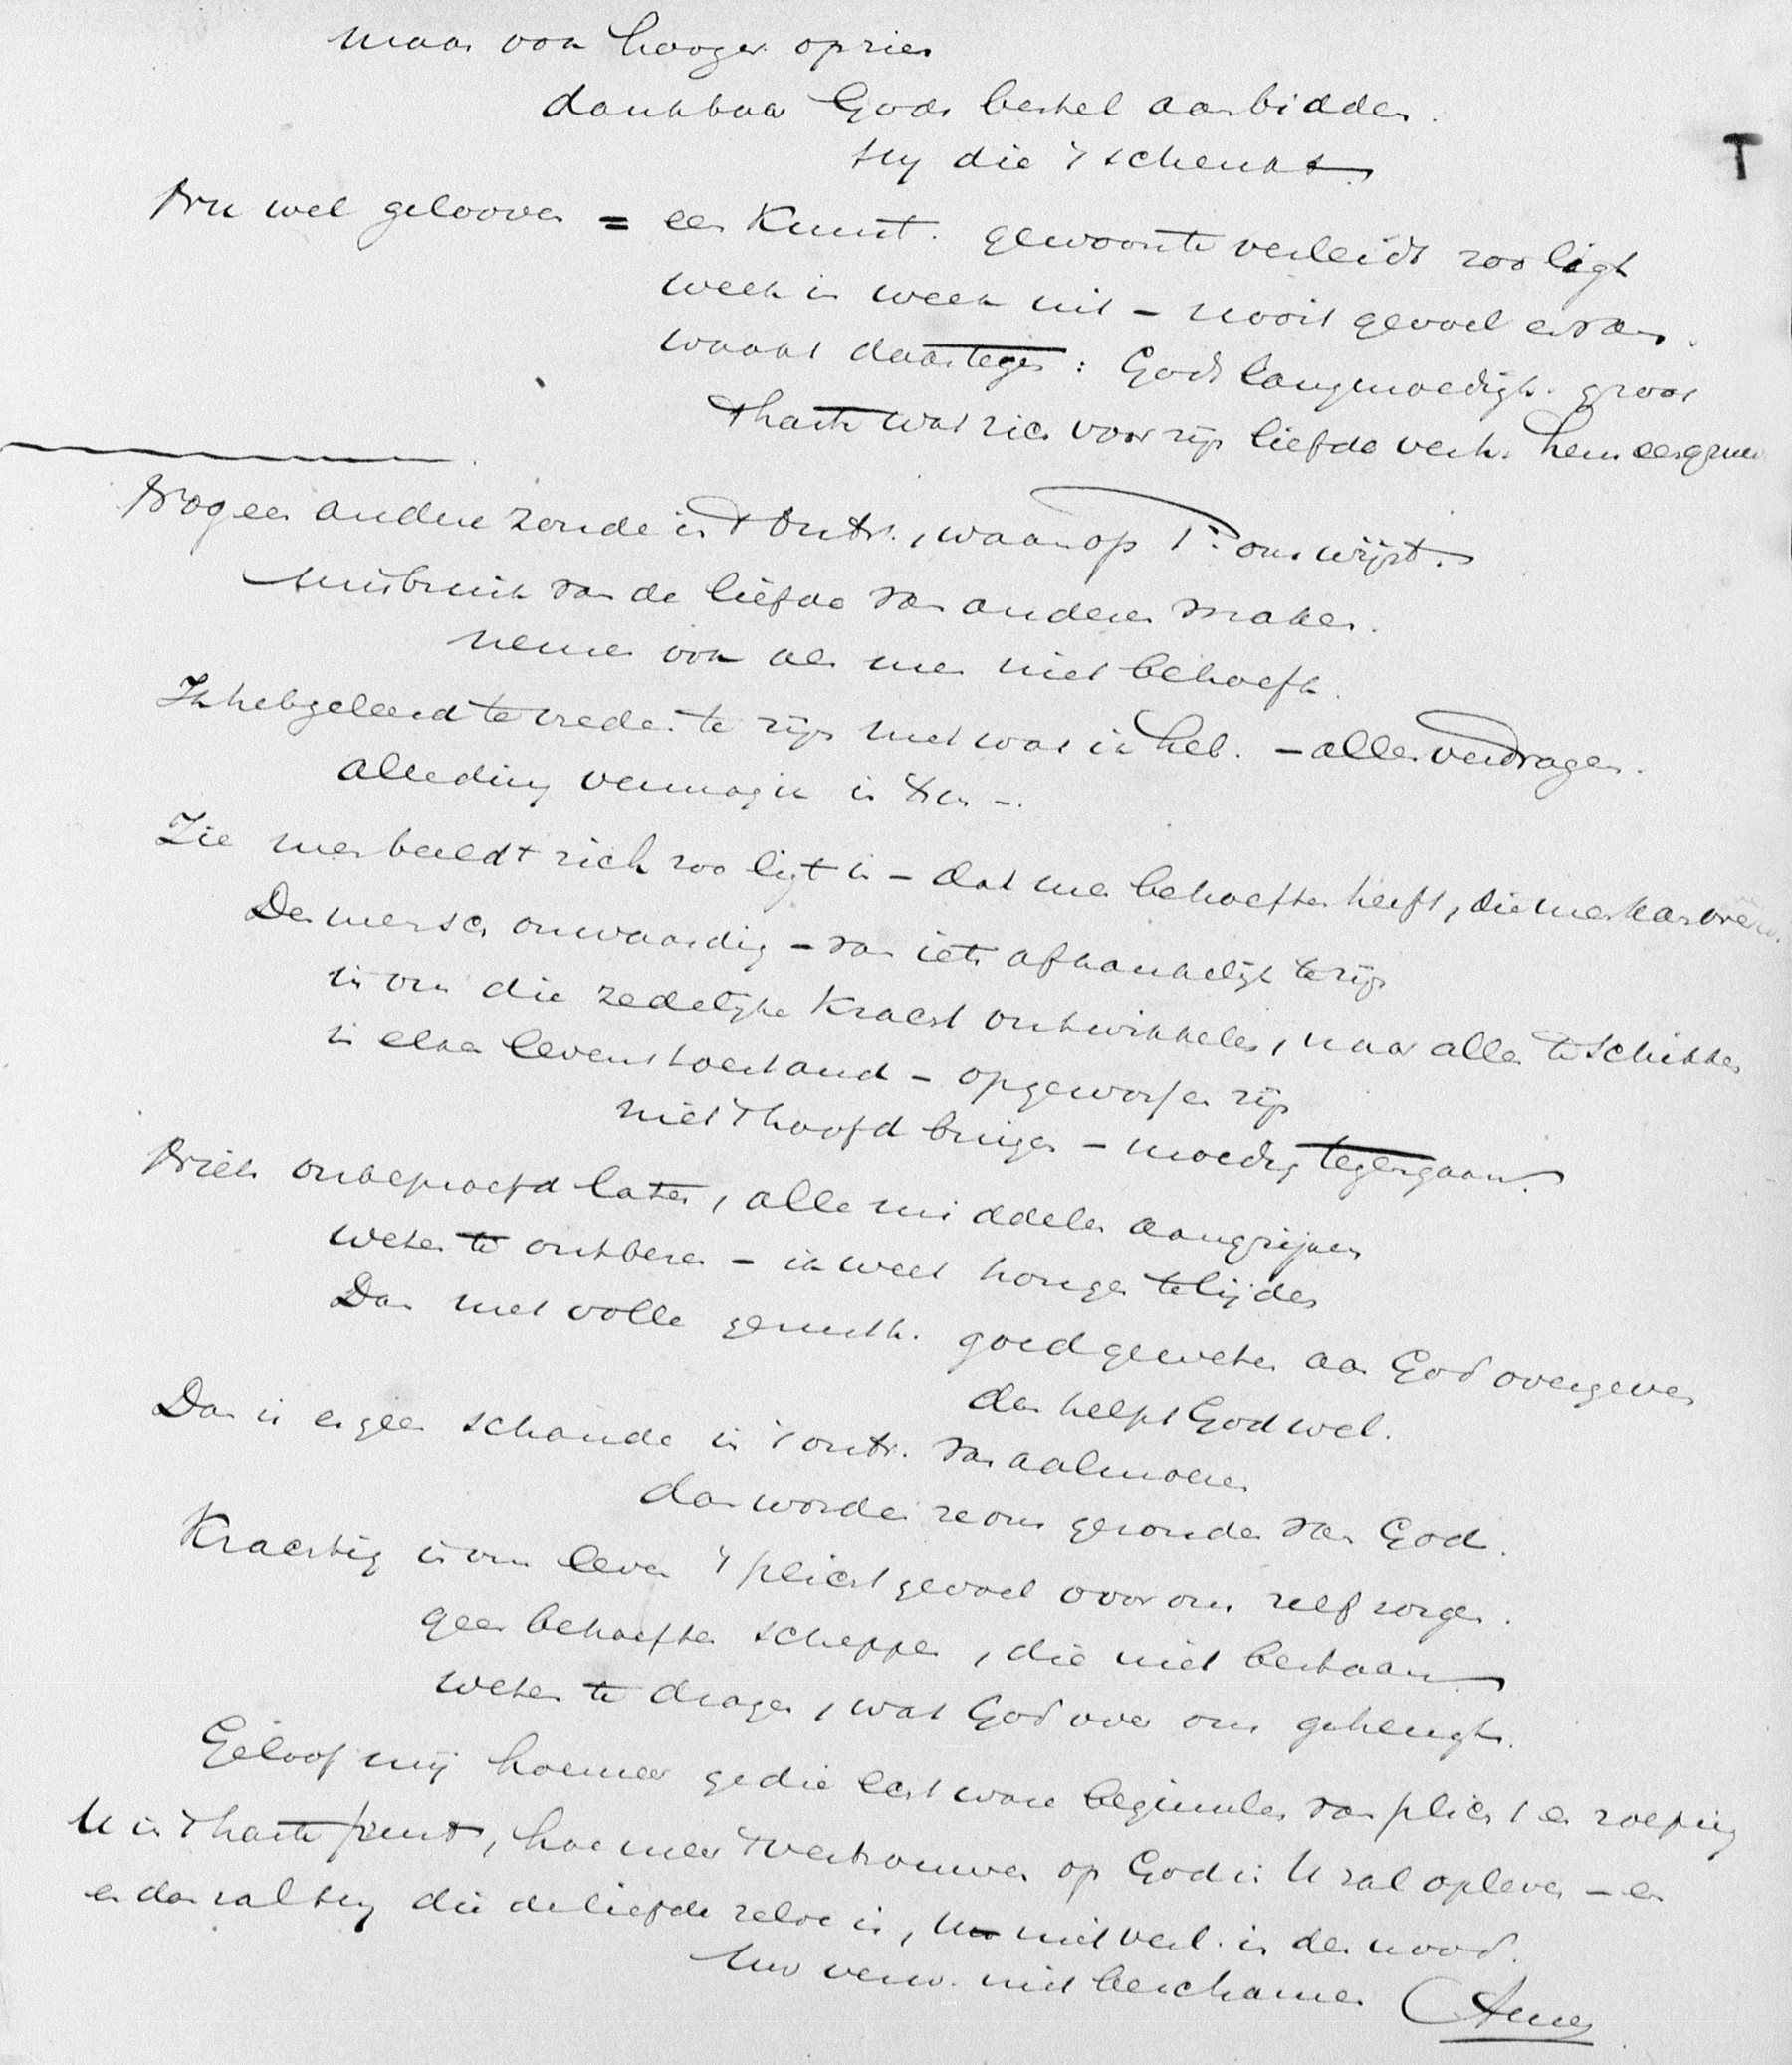 maar ook hooger op zien
dankbaar Gods bestel aanbidden.
Hij die 't schenkt
T
Nu wel gelooven = een Kunst. gewoonte verleidt zoo ligt
week in week uit - nooit gevoel ervan.
waakt daartegen: Gods langmoedigh. groot
't harte wat zich voor zijn liefde verh. hem
Nog een andere zonde in 't ontv., waarop P. ons wijst.
misbruik van de liefde van anderen maken.
nemen ook als men niet behoeft.
Ik heb geleerd te vreden te zijn met wat ik heb. - alles verdragen.
alle ding vermag ik in Hem -.
Zie men beeldt zich zoo ligt in - dat men behoeften heeft, die men kan
Den mensch onwaardig - van iets afhankelijk te zijn
in ons die zedelijke Kracht ontwikkelen, naar alles te schikken
in elken levenstoestand - opgeworpen zijn
niet 't hoofd buigen - moedig tegengaan.
Niets onbeproefd laten, alle middelen aangrijpen
weten te ontberen - ik weet honger te lijden
Dan met volle gerusth. goed geweten aan God overgeven
dan helpt God wel.
Dan is er geen schande in 't ontv. van aalmoezen
dan worden ze ons gezonden van God.
Krachtig in ons leven 't plichtgevoel voor ons zelf zorgen.
geen behoeften scheppen, die niet bestaan
weten te dragen, wat God over ons gehengt.
Geloof mij hoe meer ge die echt ware beginselen van plicht en roeping
U in 't harte prent, hoe meer 't vertrouwen op God in U zal opleven - en
en dan zal Hij die de liefde zelve is, U niet verl. in den nood.
Uw verw. niet beschamen Amen